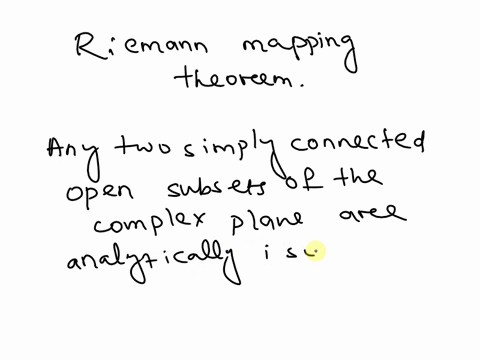 Riemann mapping
theorem.
Any two simply connected
open subsets of the
complex plane area
analytically is